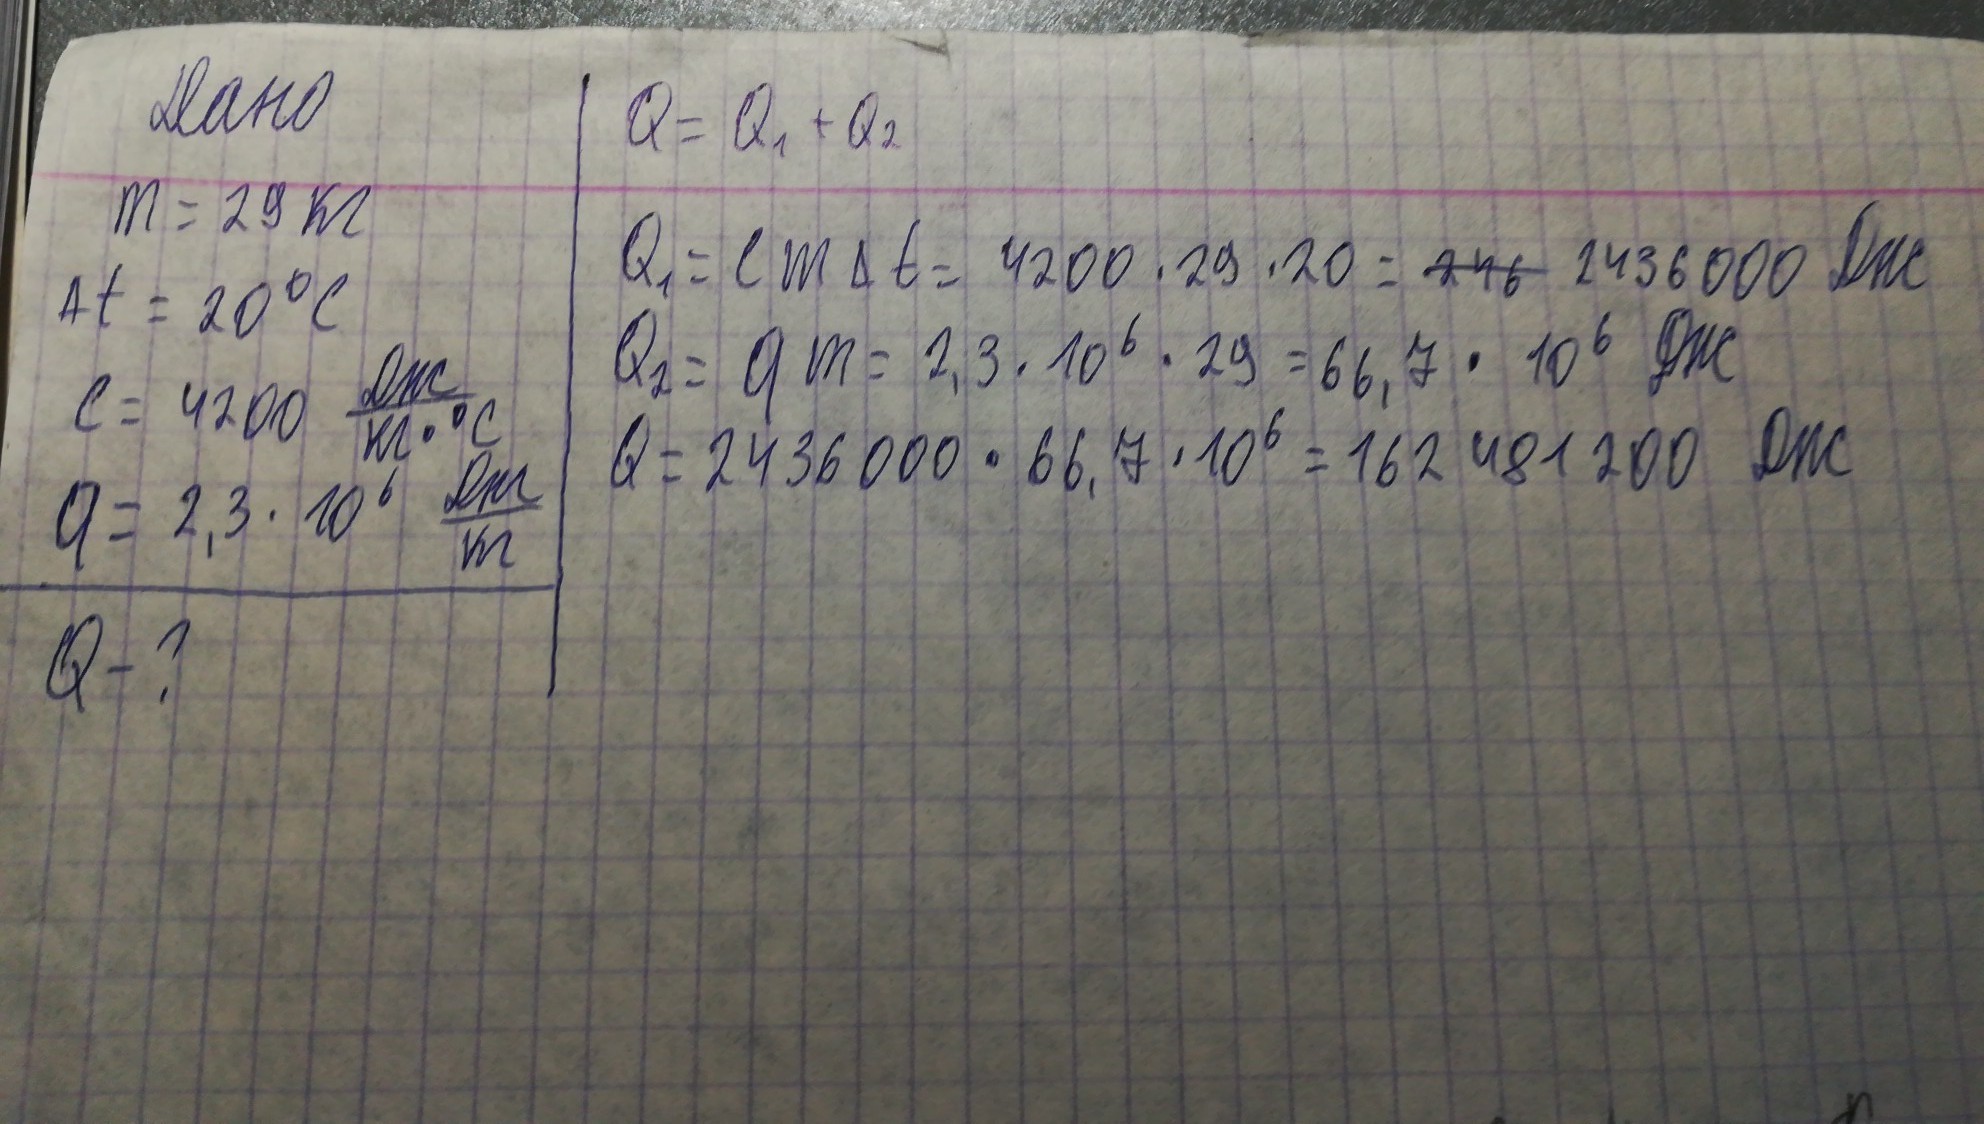 Дано
m = 29 кг
Δt = 20°C
c = 4200 Дж/кг·°C
q = 2,3 · 10⁶ Дж/кг
Q - ?
Q = Q₁ + Q₂
Q₁ = c m Δt = 4200 · 29 · 20 = 246 2436000 Дж
Q₂ = q m = 2,3 · 10⁶ · 29 = 66,7 · 10⁶ Дж
Q = 2436000 · 66,7 · 10⁶ = 162 481 200 Дж